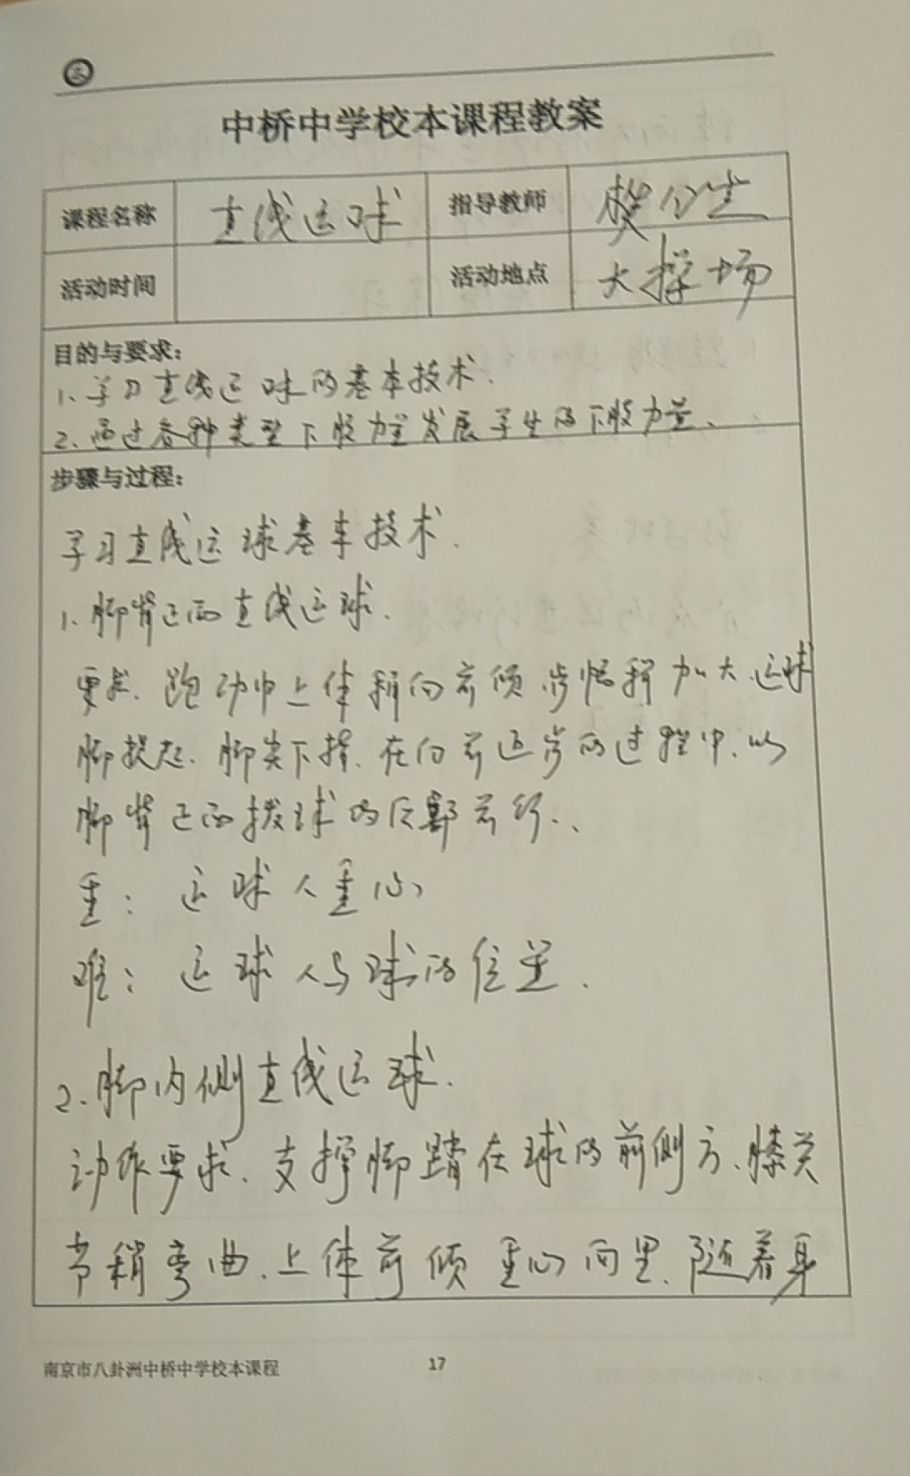 中桥中学校本课程教案
课程名称 直线运球 指导教师 樊公生
活动时间 活动地点 大操场
目的与要求:
1、学习直线运球的基本技术.
2、通过各种类型下肢力量发展学生的下肢力量、
步骤与过程:
学习直线运球基本技术.
1、脚背正面直线运球.
要求、跑动中上体稍向前倾、步幅稍加大、运球
脚提起、脚尖下指、在向前迈步的过程中、以
脚背正面拨球的后部前行、
重: 运球人重心
难: 运球人与球的位置.
2、脚内侧直线运球.
动作要求、支撑脚踏在球的前侧方、膝关
节稍弯曲、上体前倾重心向里、随着身
南京市八卦洲中桥中学校本课程 17